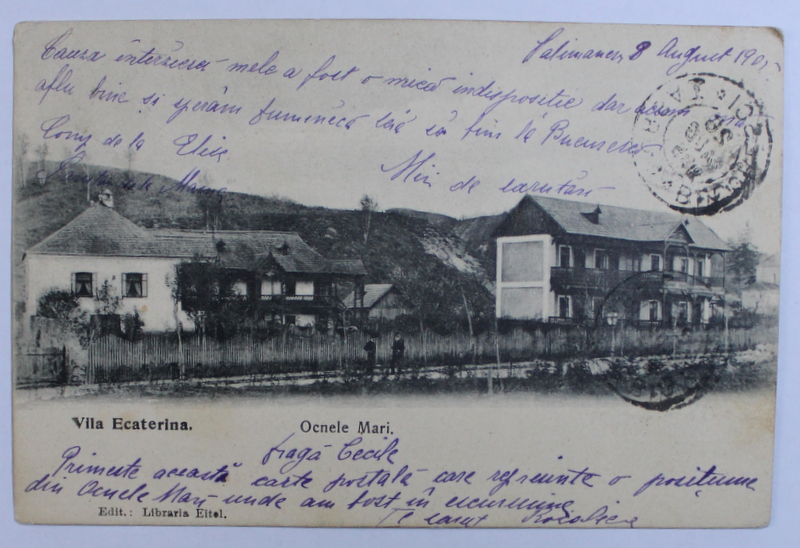 8 August 190
Cauza întârzierei mele a fost o mică indispoziție dar acum
aflu bine și sperăm Duminecă să fim la București
Comp. de la Eliza
Mii de sărutări
Vila Ecaterina.
Ocnele Mari.
Dragă Cecile
Primește această carte postală care represinte o pozițiune
din Ocnele Mari unde am fost în excursiune
Te sărut
Edit.: Libraria Eitel.